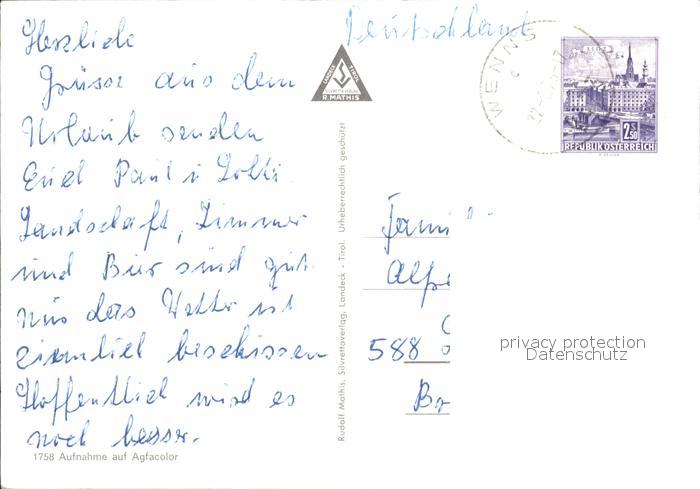 Deutschland
Herzliche
Grüsse aus dem
Urlaub senden
Euch Paul u Lotti
Landschaft, Zimmer
und Bier sind gut.
Nur das Wetter ist
ziemlich beschissen
Hoffentlich wird es
noch besser.
1758 Aufnahme auf Agfacolor
R. MATHIS
Rudolf Mathis, Silvrettaverlag, Landeck - Tirol. Urheberrechtlich geschützt
WENNS
LINZ
2.50
REPUBLIK ÖSTERREICH
Fami
Alfr
588
privacy protection
Datenschutz